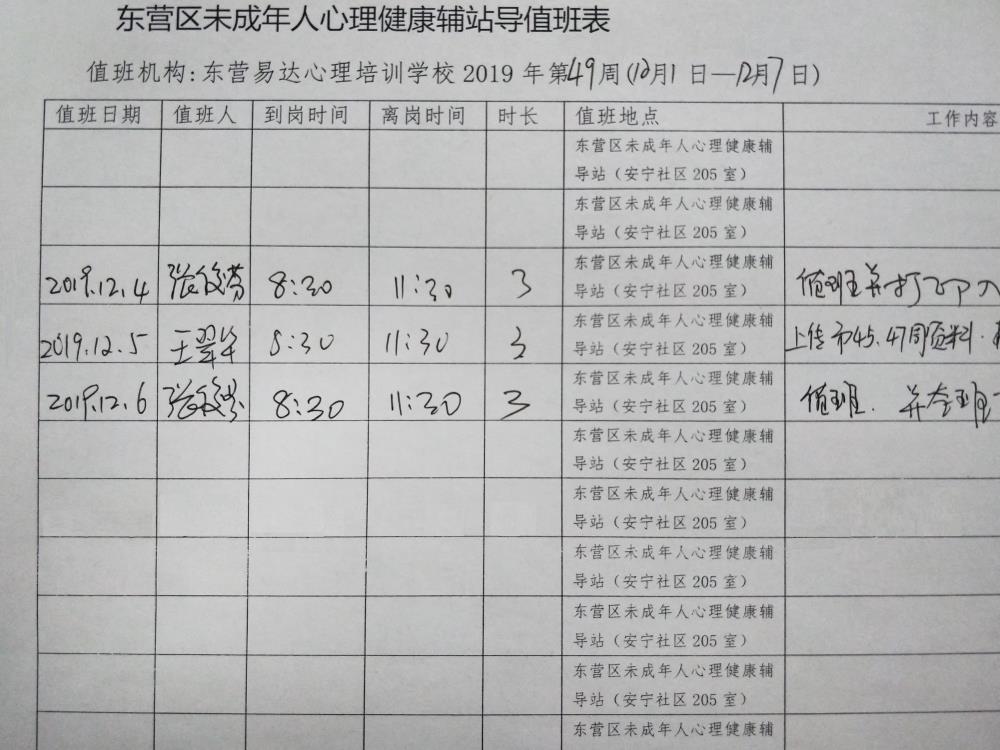 东营区未成年人心理健康辅站导值班表
值班机构:东营易达心理培训学校 2019 年第49周(12月1日—12月7日)
值班日期 值班人 到岗时间 离岗时间 时长 值班地点 工作内容
东营区未成年人心理健康辅
导站（安宁社区 205 室）
东营区未成年人心理健康辅
导站（安宁社区 205 室）
东营区未成年人心理健康辅
2019.12.4 8:30 11:30 3 导站（安宁社区 205 室） 值班并打
东营区未成年人心理健康辅
2019.12.5 王翠华 8:30 11:30 3 导站（安宁社区 205 室） 上传市45.47周资料.
东营区未成年人心理健康辅
2019.12.6 8:30 11:30 3 导站（安宁社区 205 室） 值班. 并
东营区未成年人心理健康辅
导站（安宁社区 205 室）
东营区未成年人心理健康辅
导站（安宁社区 205 室）
东营区未成年人心理健康辅
导站（安宁社区 205 室）
东营区未成年人心理健康辅
导站（安宁社区 205 室）
东营区未成年人心理健康辅
导站（安宁社区 205 室）
东营区未成年人心理健康辅